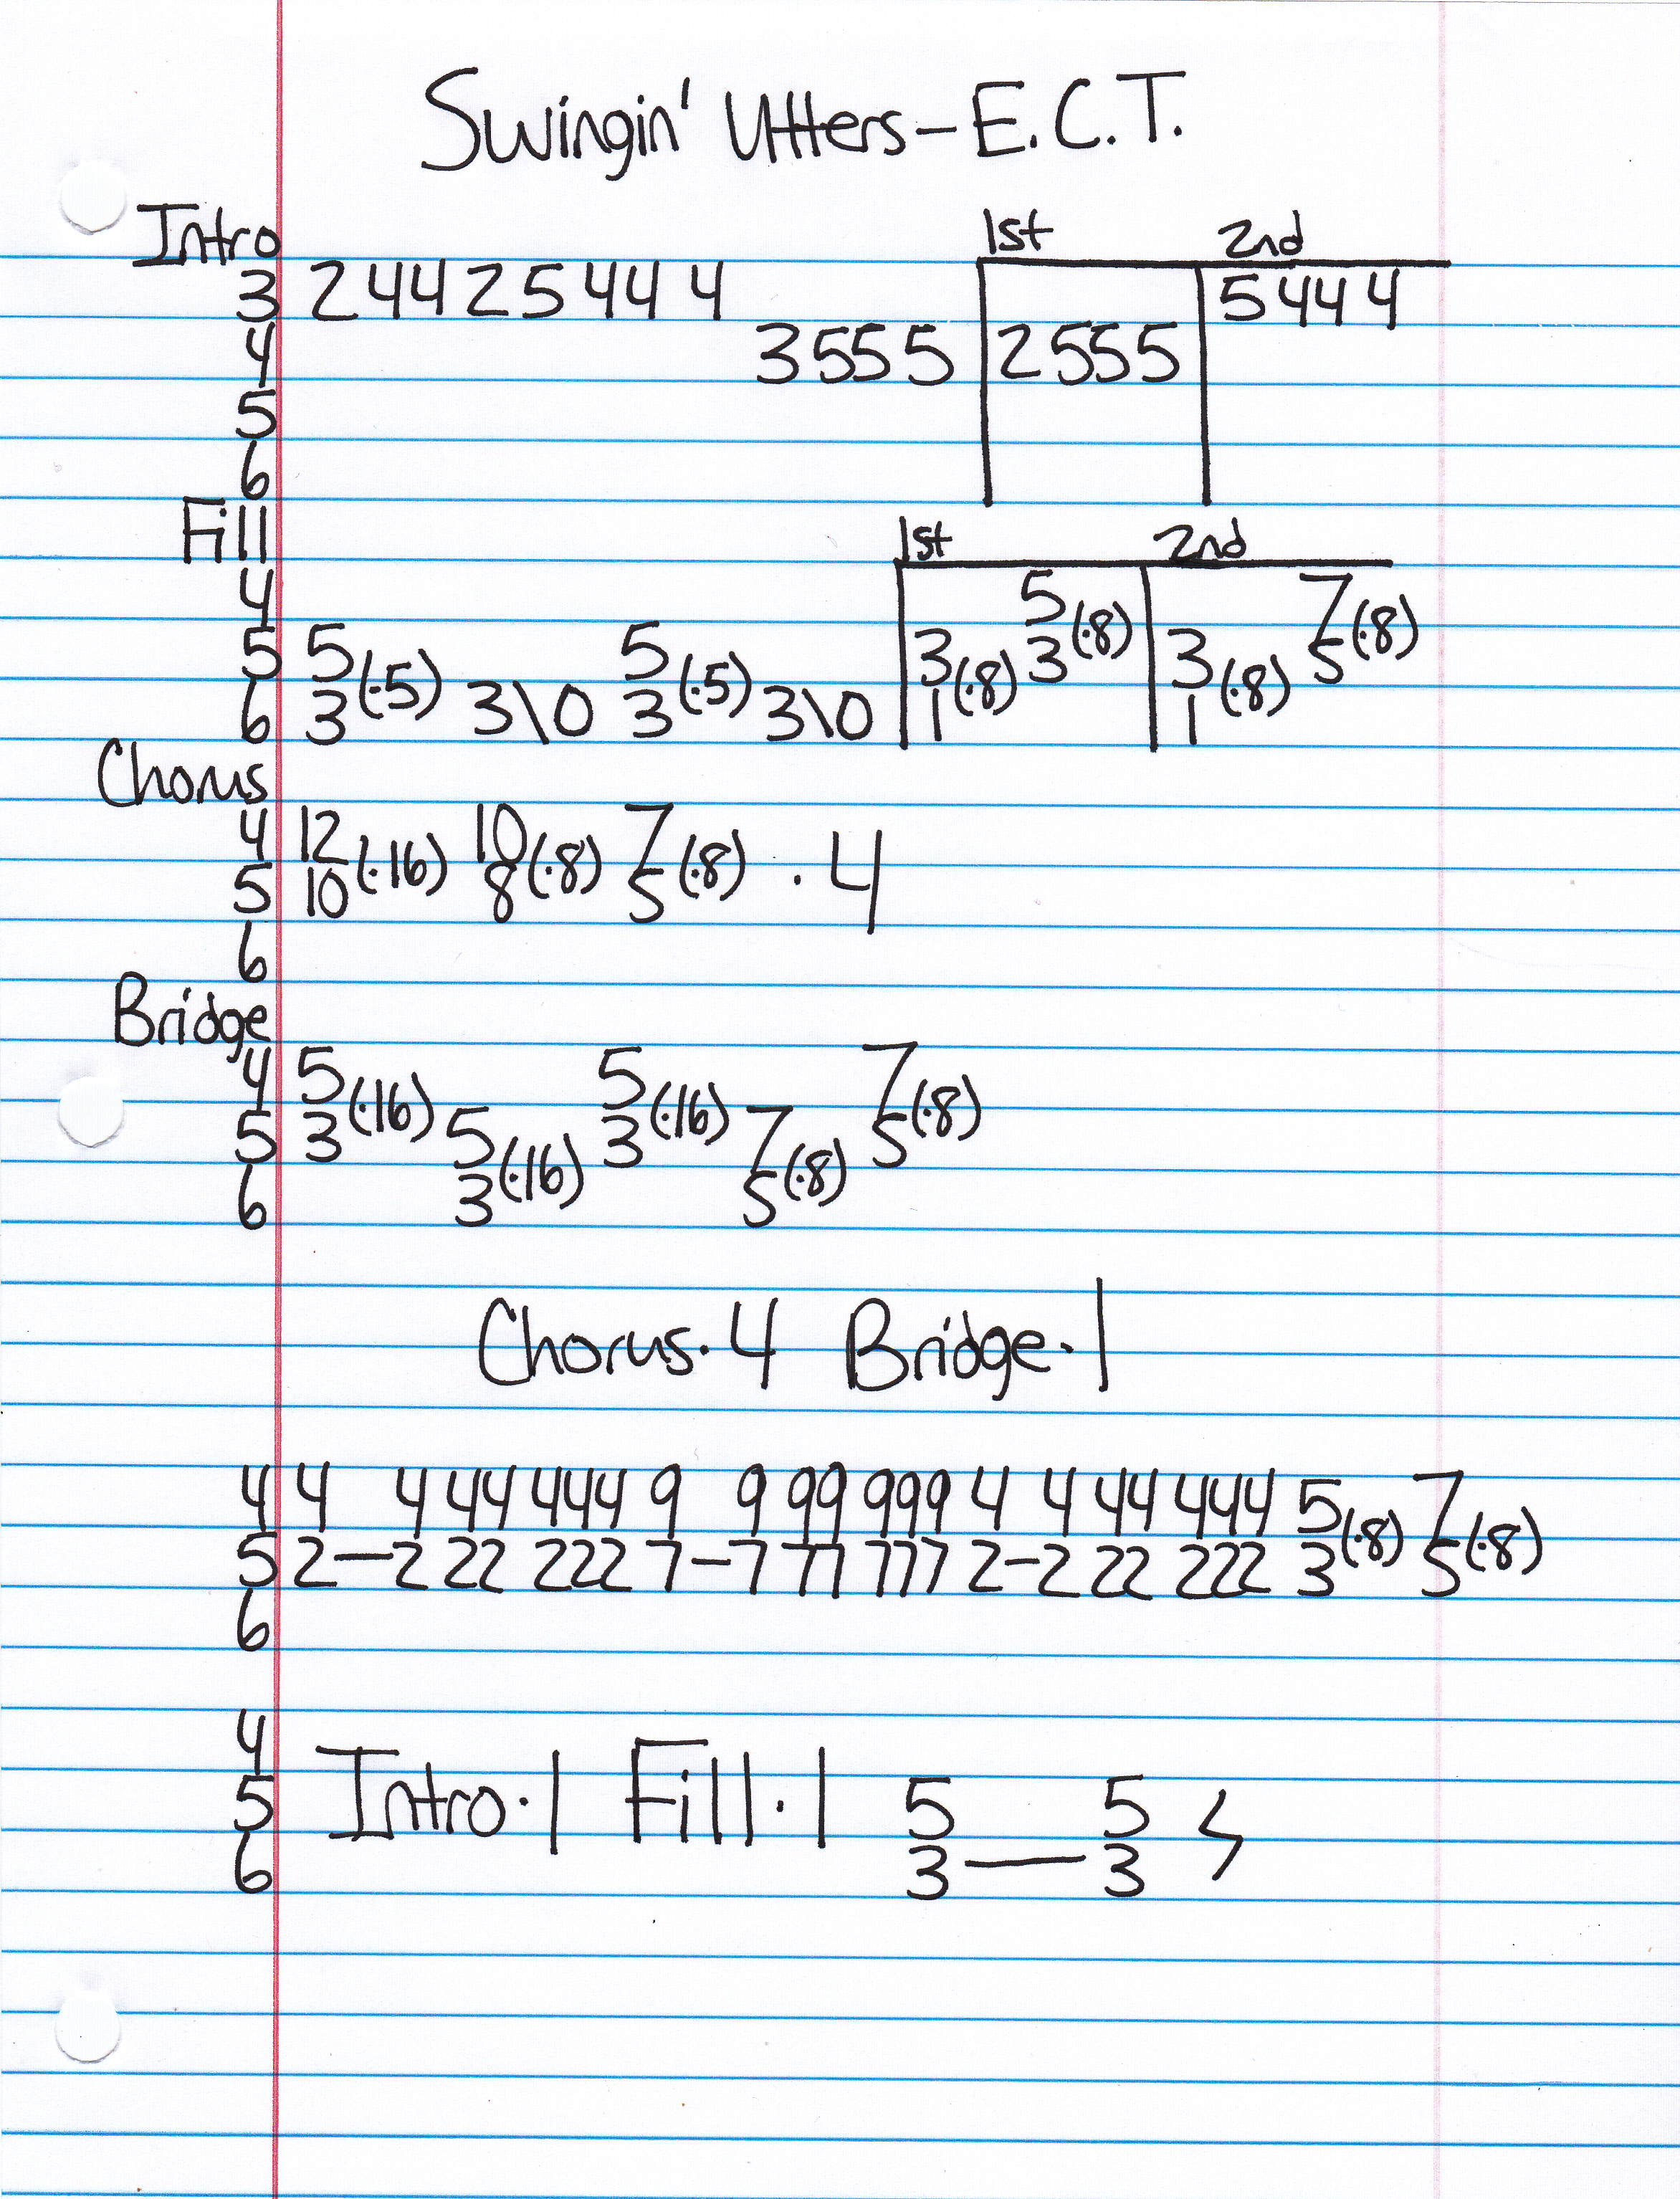 Swingin' Utters - E.C.T.
Intro 1st 2nd
3 2 44 2 5 44 4 5 44 4
4 3 55 5 2 55 5
5
6
Fill 1st 2nd
4 5 7
5 5 (·5) 5 (·5) 3 (·8) 3 (·8) 3 (·8) 5 (·8)
6 3 3\0 3 3\0 1 1
Chorus
4 12 (·16) 10 (·8) 7 (·8) · 4
5 10 8 5
6
Bridge
4 5 (·16) 5 (·16) 7 (·8)
5 3 5 (·16) 3 7 (·8) 5
6 3 5
Chorus · 4 Bridge · 1
4 4 4 44 444 9 9 99 999 4 4 44 444 5 (·8) 7 (·8)
5 2—2 22 222 7—7 77 777 2—2 22 222 3 5
6
4
5 Intro · 1 Fill · 1 5 5
6 3—3